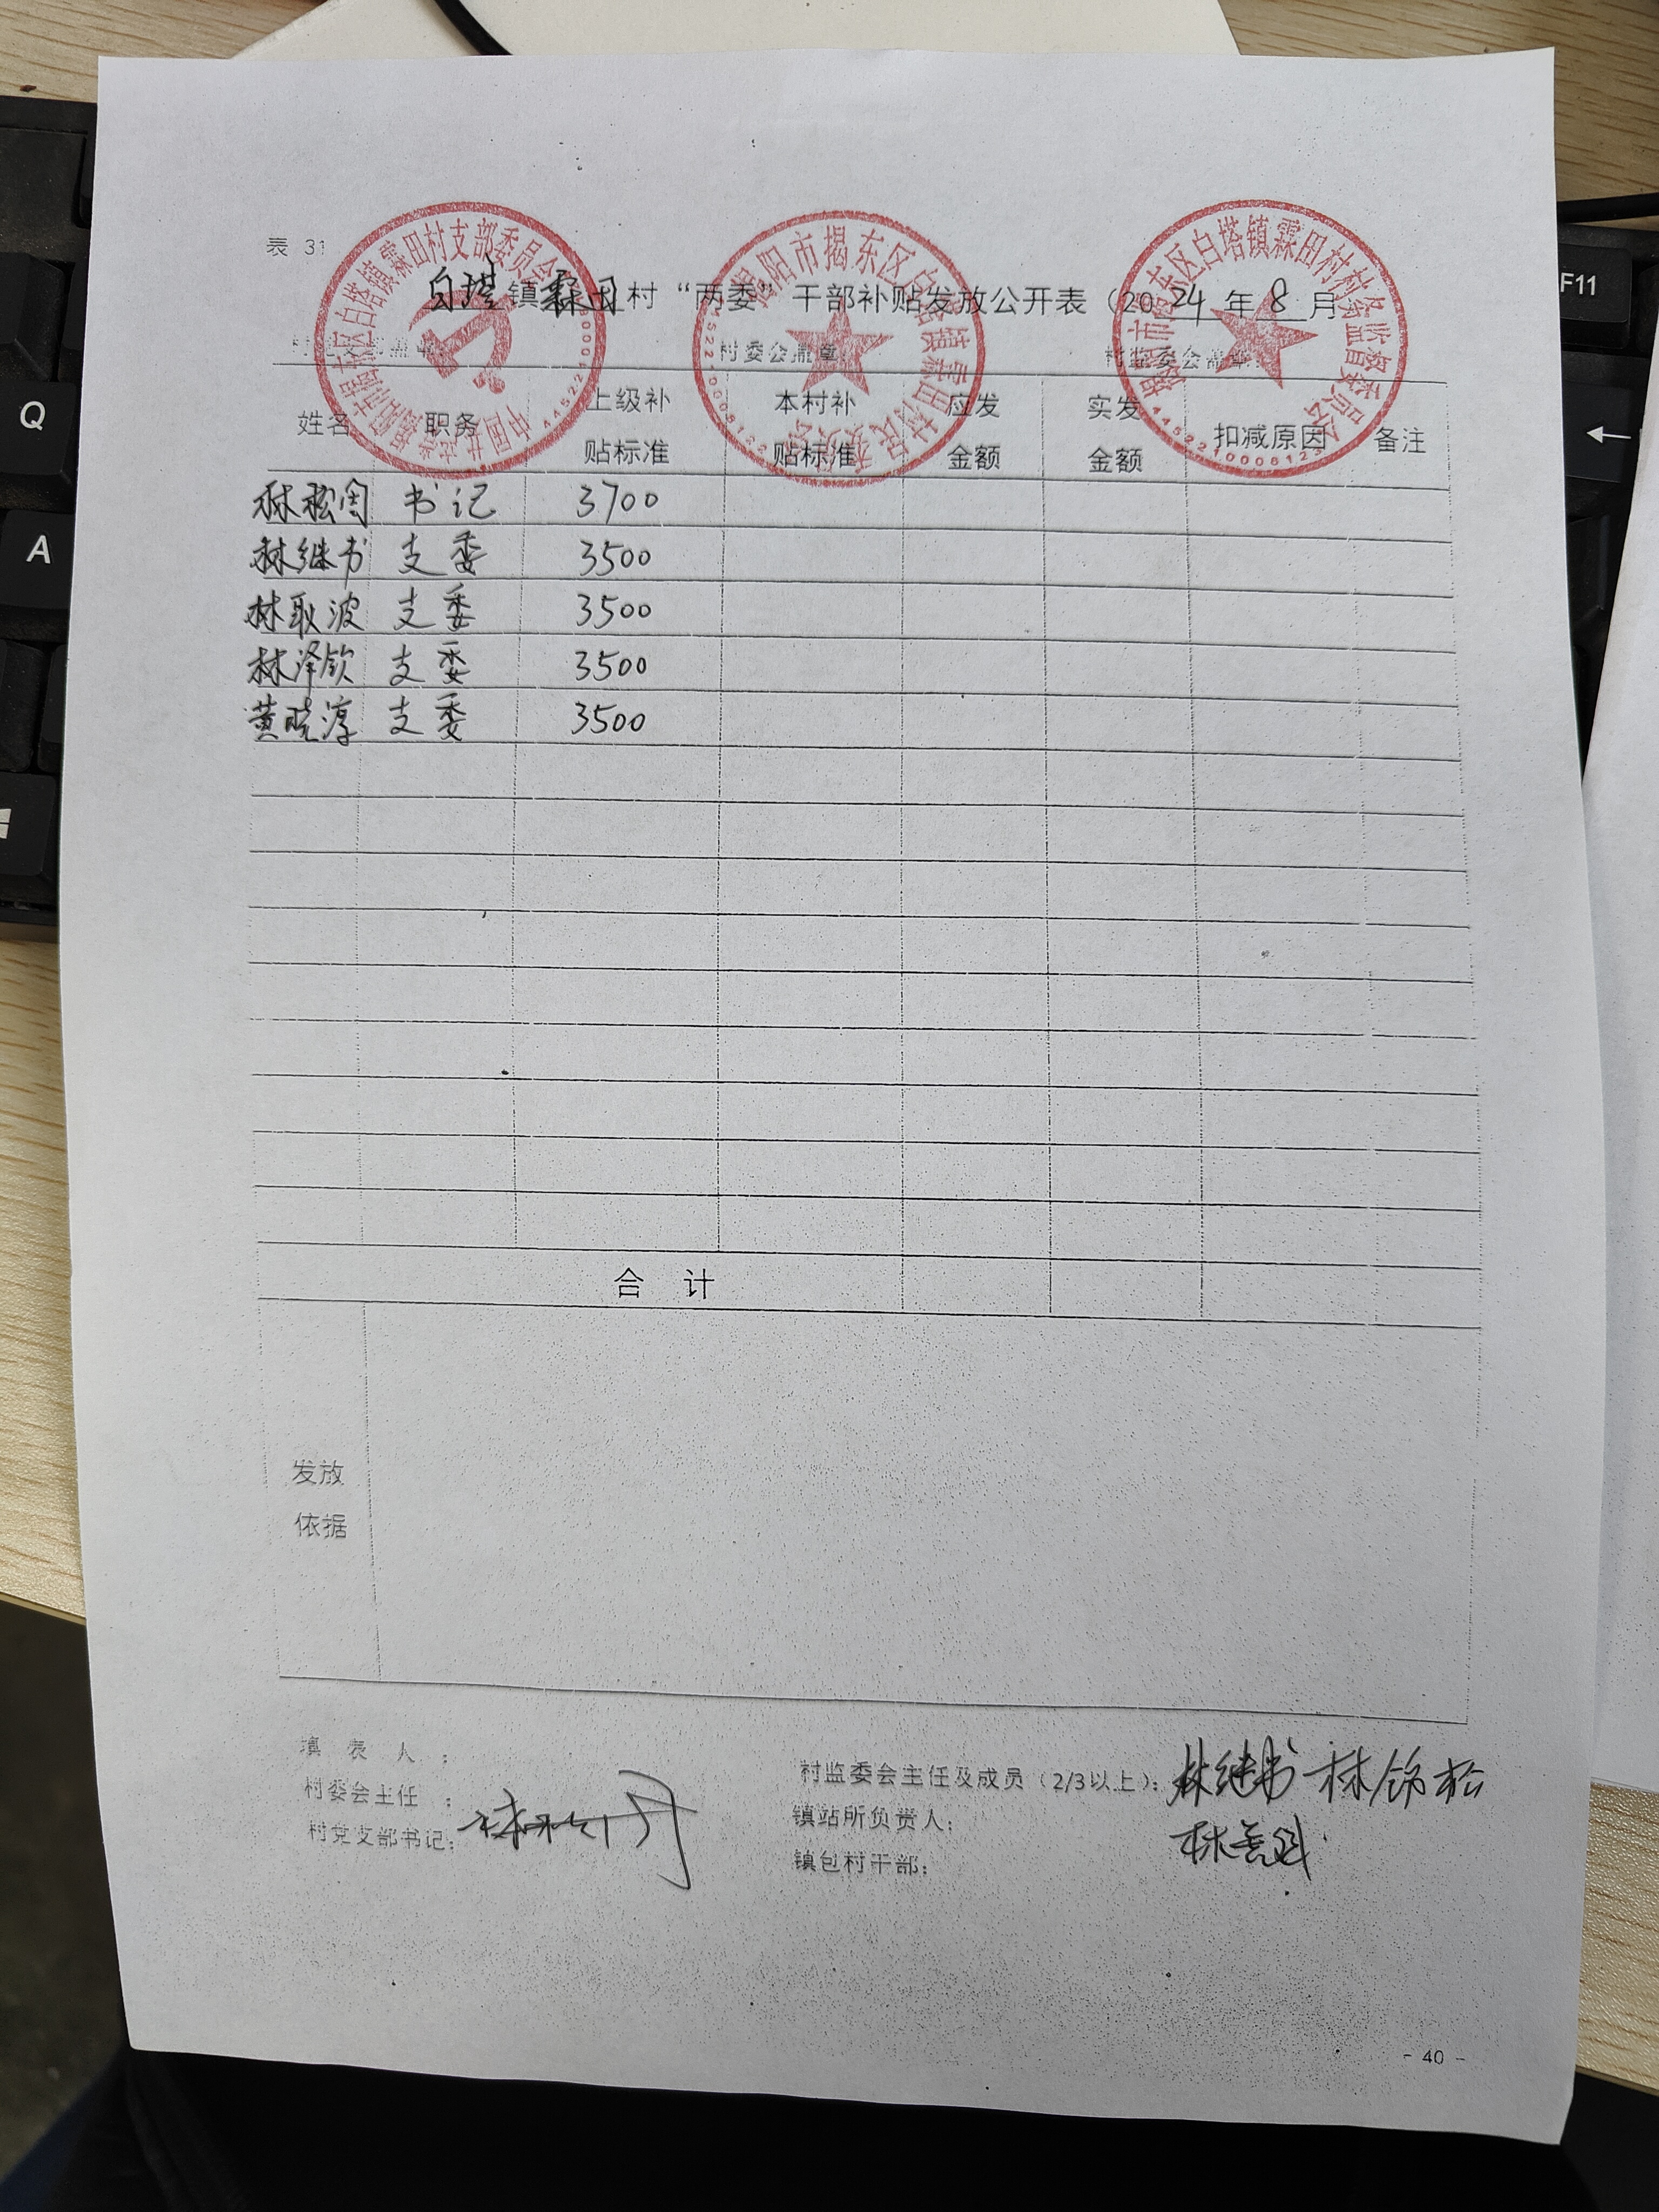 表 31
白塔镇霖田村“两委”干部补贴发放公开表（2024年8月
村委会盖章：
村监委会盖章：
姓名 职务 上级补贴标准 本村补贴标准 应发金额 实发金额 扣减原因 备注
林松周 书记 3700
林继书 支委 3500
林取波 支委 3500
林泽钦 支委 3500
黄晓淳 支委 3500
合 计
发放
依据
填 表 人 ：
村监委会主任及成员（2/3以上）：林继书 林
村委会主任 ：
镇站所负责人：
林
村党支部书记：
镇包村干部：
- 40 -
揭阳市揭东区白塔镇霖田村支部委员会
揭阳市揭东区白塔镇霖田村村民委员会
揭阳市揭东区白塔镇霖田村村务监督委员会
F11
Q
A